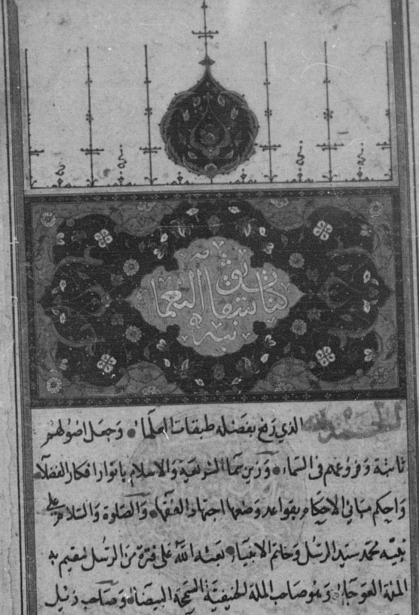 كتاب شقايق
النعما
نيه
الحمد لله الذي رفع بفضله طبقات العلماء وجعل اصولهم
ثابتة وفروعهم في السماء وزين سماء الشريعة والاسلام بانوار افكار الفضلاء
واحكم مباني الاحكام بقواعد وضعها اجتهاد الفقهاء والصلوة والسلام على
نبيه محمد سيد الرسل وخاتم الانبياء بعثه الله على فترة من الرسل ليقيم به
الملة العوجاء وهو صاحب الملة الحنيفية السمحة البيضاء وصاحب ذيل